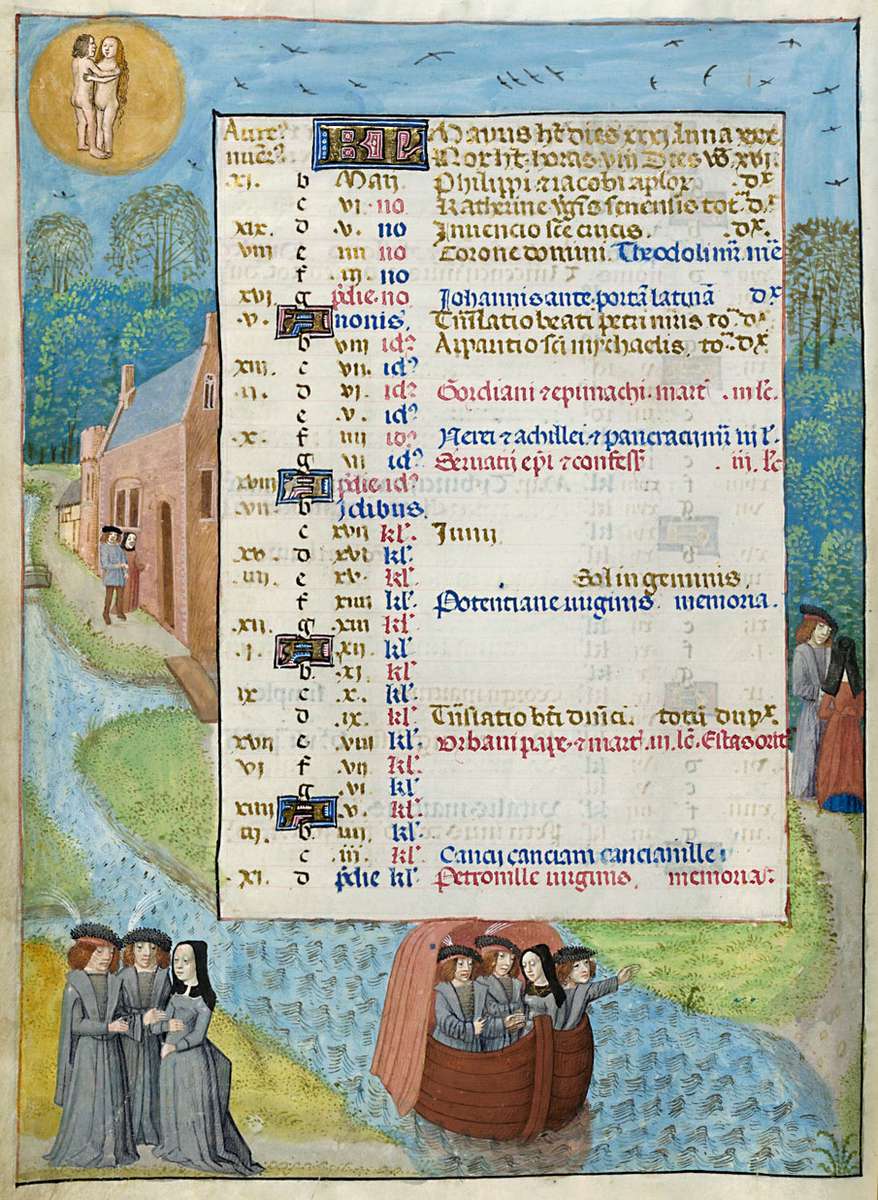 Aure9 KL Maius ht dies xxxi luna xxx.
numer9 Nox ht horas viii Dies vo xvi.
xi. b Maii Philippi ⁊ iacobi aplor. dx
c vi no Katherine vgis senensis tot. dx
xix. d v. no Inuencio sce crucis. dx.
viii e iiii no Corone domini. Theodoli mr. me
f iii no
xvi g pdie no Johannis ante portā latinā dx
.v. A nonis. Trslatio beati petri mris to. dx
b viii id9 Apparitio sci michaelis. to. dx
xiii c vii. id9
.ii. d vi. id9 Gordiani ⁊ epimachi mart. iii lc.
e v. id9
.x. f iiii id9 Nerei ⁊ achillei ⁊ pancracii mr iii l.
g iii id9 Seruatii epi ⁊ confess. iii. lc
xviii A pdie id9
vii b idibus.
c xvii kl. Junii
xv d xvi kl.
iiii e xv kl. Sol in geminis.
f xiiii kl. Potentiane uirginis memoria.
xii. g xiii kl.
.i. A xii kl.
b xi kl.
ix c x. kl.
d .ix. kl. Trslatio bti dnici. totū dupx
xvii e viii kl. Vrbani pape ⁊ mart. iii. lc. Estas orit
vi f vii kl.
g vi kl.
xiiii A v. kl.
iii. b iiii kl.
c iii. kl. Cancii canciani cancianille
.xi. d pdie kl. Petronille uirginis. memoria.